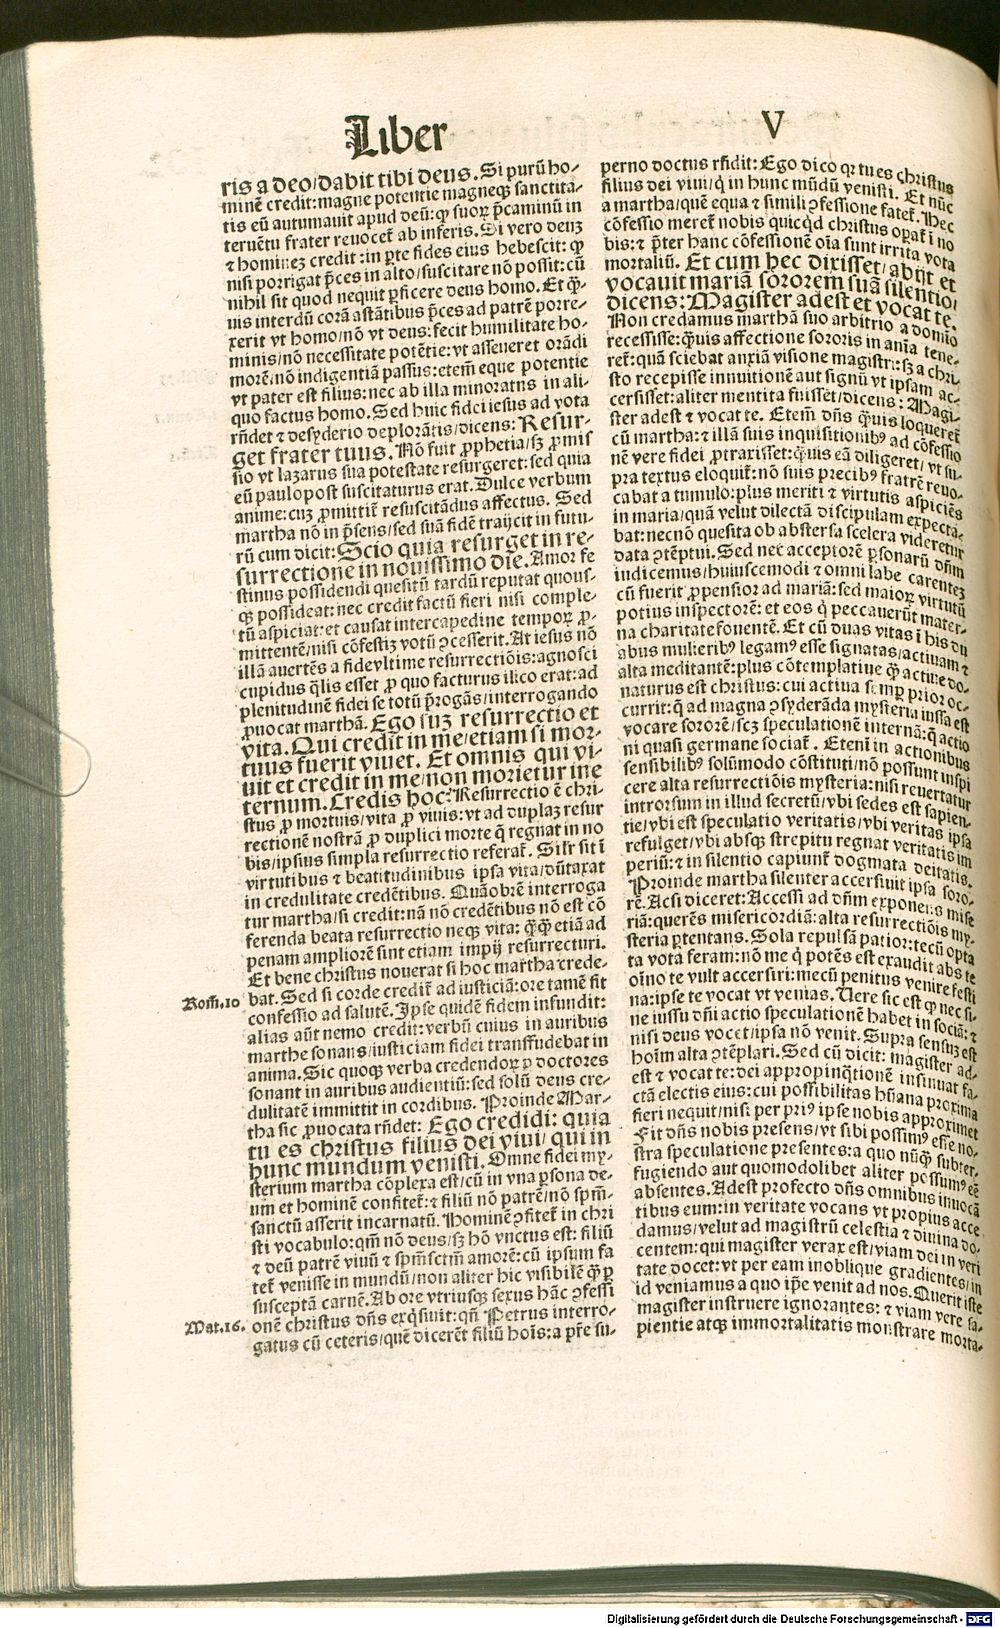 Liber V
ris a deo/dabit tibi deus. Si purū ho-
minē credit: magne potentie magneqꝫ sanctita-
tis eū autumauit apud deū: ꝙ suoꝝ p̄caminū in
teruētu frater reuocet̄ ab inferis. Si vero deuꝫ
⁊ hominez credit: in ꝑte fides eius hebescit: ꝙ
nisi porrigat p̄ces in alto/suscitare nō possit: cū
nihil sit quod nequit ꝑficere deus homo. Et ꝙ̄-
uis interdū corā astātibus p̄ces ad patrē porre-
xerit vt homo/nō vt deus: fecit humilitate ho-
minis/nō necessitate potētie: vt asseueret orādi
morē/nō indigentiā passus: etem̄ eque potentie
vt pater est filius: nec ab illa minoratus in ali-
quo factus homo. Sed huic fidei iesus ad vota
rn̄det ⁊ desyderio deplorātis/dicens: Resur-
get frater tuus. Nō fuit ꝓphetia/sꝫ ꝓmis
sio vt lazarus sua potestate resurgeret: sed quia
eū paulopost suscitaturus erat. Dulce verbum
anime: cuꝫ ꝓmittit̄ resuscitādus affectus. Sed
martha nō in p̄sens/sed suā fidē traycit in futu-
rū cum dicit: Scio quia resurget in re-
surrectione in nouissimo die. Amor fe
stinus possidendi quesitū tardū reputat quous-
qꝫ possideat: nec credit factū fieri nisi comple-
tū aspiciat: et causat intercapedine tempoꝝ ꝓ-
mittentē/nisi cōfestiꝫ votū ꝯcesserit. At iesus nō
illā auertēs a fide vltime resurrectiōis: agnosci
cupidus q̄lis esset ꝓ quo facturus ilico erat: ad
plenitudinē fidei se totū p̄rogās/interrogando
ꝓuocat marthā. Ego suꝫ resurrectio et
vita. Qui credit in me/etiam si mor-
tuus fuerit viuet. Et omnis qui vi-
uit et credit in me/non morietur in e
ternum. Credis hoc? Resurrectio ē chri-
stus ꝓ mortuis/vita ꝓ viuis: vt ad duplaꝫ resur
rectionē nostrā ꝓ duplici morte q̄ regnat in no
bis/ipsius simpla resurrectio referat̄. Sikr sit ī
virtutibus ⁊ beatitudinibus ipsa vita/dūtaxat
in credulitate credētibus. Quāobrē interroga
tur martha/si credit: nā nō credētibus nō est cō
ferenda beata resurrectio neqꝫ vita: ꝙ̄ꝙ̄ etiā ad
penam ampliorē sint etiam impij resurrecturi.
Et bene christus nouerat si hoc martha crede-
Rom̄.10 bat. Sed si corde credit̄ ad iusticiā: ore tamē fit
confessio ad salutē. Ipse quidē fidem infundit:
alias aūt nemo credit: verbū cuius in auribus
marthe sonans/iusticiam fidei transfudebat in
anima. Sic quoqꝫ verba credendoꝝ ꝑ doctores
sonant in auribus audientiū: sed solū deus cre-
dulitatē immittit in cordibus. Proinde Mar-
tha sic ꝓuocata rn̄det: Ego credidi: quia
tu es christus filius dei viui/ qui in
hunc mundum venisti. Omne fidei my-
sterium martha cōplexa est/cū in vna ꝑsona de-
um et hominē confitet̄: ⁊ filiū nō patrē/nō spm̄-
sanctū asserit incarnatū. Hominē ꝯfitet̄ in chri
sti vocabulo: qm̄ nō deus/sꝫ hō vnctus est: filiū
⁊ deū patrē viuū ⁊ spm̄sctm̄ amorē: cū ipsum fa
tet̄ venisse in mundū/non aliter hic visibilē ꝙ̄ ꝑ
susceptā carnē. Ab ore vtriusqꝫ sexus hāc ꝯfessi
Mat.16. onē christus dn̄s exq̄siuit: qn̄ Petrus interro-
gatus cū ceteris/quē dicerēt filiū hoīs: a pr̄e su-
perno doctus rn̄dit: Ego dico qꝛ tu es christus
filius dei viui/q̄ in hunc mūdū venisti. Et nūc
a martha/quē equa ⁊ simili ꝯfessione fatet̄. Hec
cōfessio meret̄ nobis quicq̄d christus opat̄ ī no
bis: ⁊ p̄ter hanc cōfessionē oīa sunt irrita vota
mortaliū. Et cum hec dixisset/abijt et
vocauit mariā sororem suā silentio/
dicens: Magister adest et vocat te.
Non credamus marthā suo arbitrio a domio
recessisse: ꝙ̄uis affectione sororis in aīa tene-
ret̄: quā sciebat anxiā visione magistri: sꝫ a chri-
sto recepisse innuitionē aut signū vt ipsam ac-
cersisset: aliter mentita fuisset/dicens: Magi-
ster adest ⁊ vocat te. Etem̄ dn̄s ꝙ̄uis loqueret̄
cū martha: ⁊ illā suis inquisitionibꝰ ad cōfessio
nē vere fidei ꝓtraxisset: ꝙ̄uis eā diligeret/vt su-
pra textus eloquit̄: nō suis precibꝰ fratrē reuo-
cabat a tumulo: plus meriti ⁊ virtutis aspiciēs
in maria/quā velut dilectā discipulam expecta-
bat: necnō quesita ob abstersa scelera videretur
data ꝯtēptui. Sed nec acceptorē ꝑsonarū dn̄m
iudicemus/huiuscemodi ⁊ omni labe carentez
cū fuerit ꝓpensior ad mariā: sed maioꝝ virtutū
potius inspectorē: et eos q̄ peccauerūt mater-
na charitate fouentē. Et cū duas vitas ī his du
abus mulieribꝰ legamꝰ esse signatas/actiuam ⁊
alta meditantē: plus cōtemplatiue ꝙ̄ actiue do-
naturus est christus: cui actiua semꝑ prior oc-
currit: q̄ ad magna ꝯsyderāda mysteria iussa est
vocare sororē/scꝫ speculationē internā: q̄ actio
ni quasi germane sociat̄. Etenī in actionibus
sensibilibꝰ solūmodo cōstituti/nō possunt inspi
cere alta resurrectiōis mysteria: nisi reuertatur
introrsum in illud secretū/vbi sedes est sapien-
tie/vbi est speculatio veritatis/vbi veritas ipsa
refulget/vbi absqꝫ strepitu regnat veritatis im
periū: ⁊ in silentio capiunt̄ dogmata deitatis.
Proinde martha silenter accersiuit ipsa soro-
rē. Acsi diceret: Accessi ad dn̄m exponens mise
riā: querēs misericordiā: alta resurrectiōis my-
steria ꝑtentans. Sola repulsā patior: tecū opta
ta vota feram: nō me q̄ potēs est exaudit abs te
oīno te vult accersiri: mecū penitus venire festi
na: ipse te vocat vt venias. Uere sic est ꝙ nec si-
ne iussu dn̄i actio speculationē habet in sociā: ⁊
nisi deus vocet/ipsa nō venit. Supra sensuꝫ est
hoīm alta ꝯtēplari. Sed cū dicit: magister ad-
est ⁊ vocat te: dei appropinq̄tionē insinuat fa-
ctā electis eius: cui possibilitas hūana proxima
fieri nequit/nisi per priꝰ ipse nobis approximet
Fit dn̄s nobis presens/vt sibi possimꝰ esse no-
stra speculatione presentes: a quo nūꝙ̄ subter-
fugiendo aut quomodolibet aliter possumꝰ eē
absentes. Adest profecto dn̄s omnibus inuocā
tibus eum: in veritate vocans vt propius acce
damus/velut ad magistrū celestia ⁊ diuina do-
centem: qui magister verax est/viam dei in veri
tate docet: vt per eam inoblique gradientes/in
id veniamus a quo ip̄e venit ad nos. Querit iste
magister instruere ignorantes: ⁊ viam vere sa-
pientie atqꝫ immortalitatis monstrare morta-
Digitalisierung gefördert durch die Deutsche Forschungsgemeinschaft - DFG